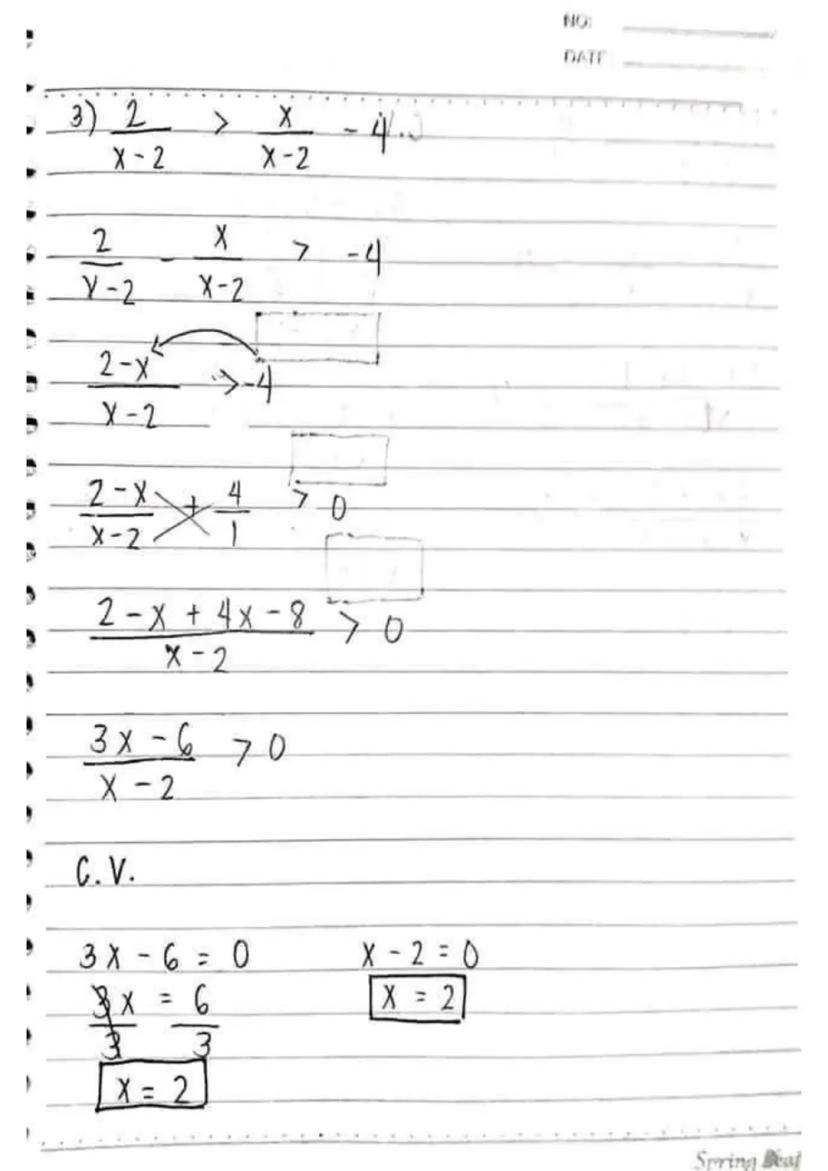 NO:
DATE
3) 2/(x-2) > x/(x-2) - 4
2/(x-2) - x/(x-2) > -4
(2-x)/(x-2) > -4
(2-x)/(x-2) + 4/1 > 0
(2-x+4x-8)/(x-2) > 0
(3x-6)/(x-2) > 0
C.V.
3x-6 = 0 x-2 = 0
3x/3 = 6/3 x = 2
x = 2
Spring Leaf